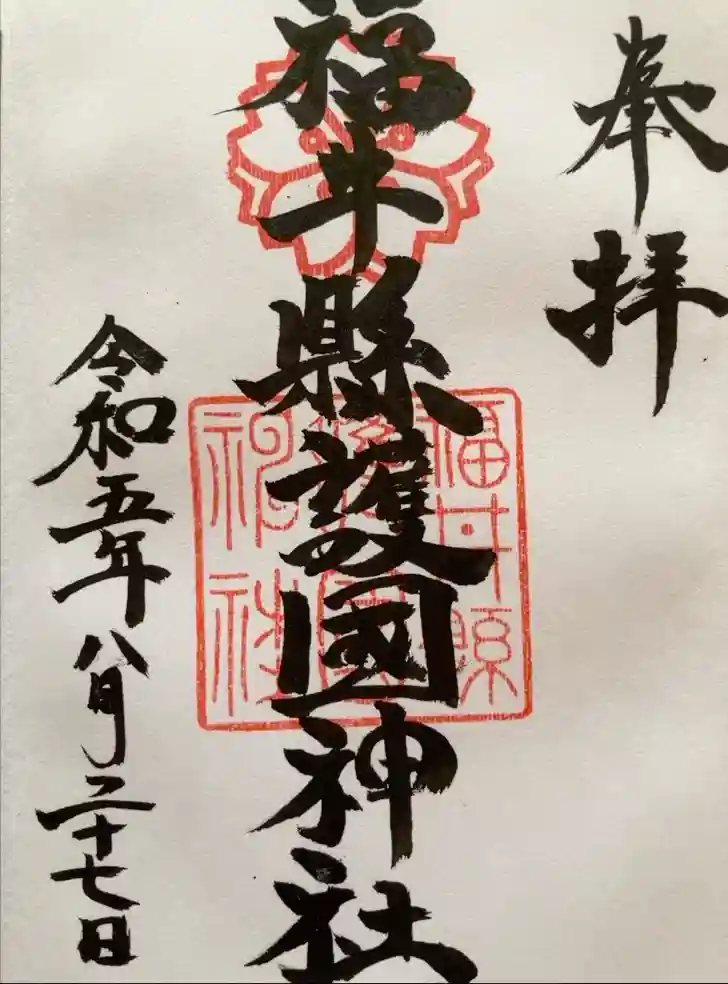 奉拝
福井縣護國神社
福井縣護國神社
令和五年八月二十七日